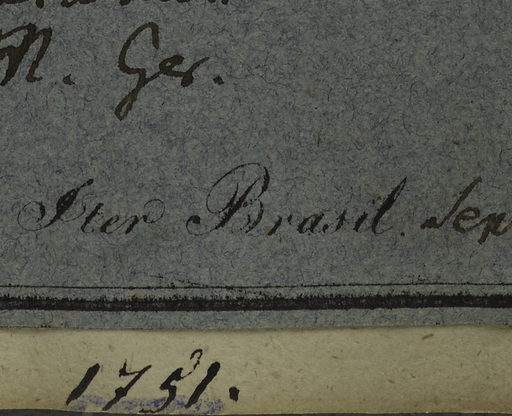 M. Ger.
Iter Brasil. Sep
1751.